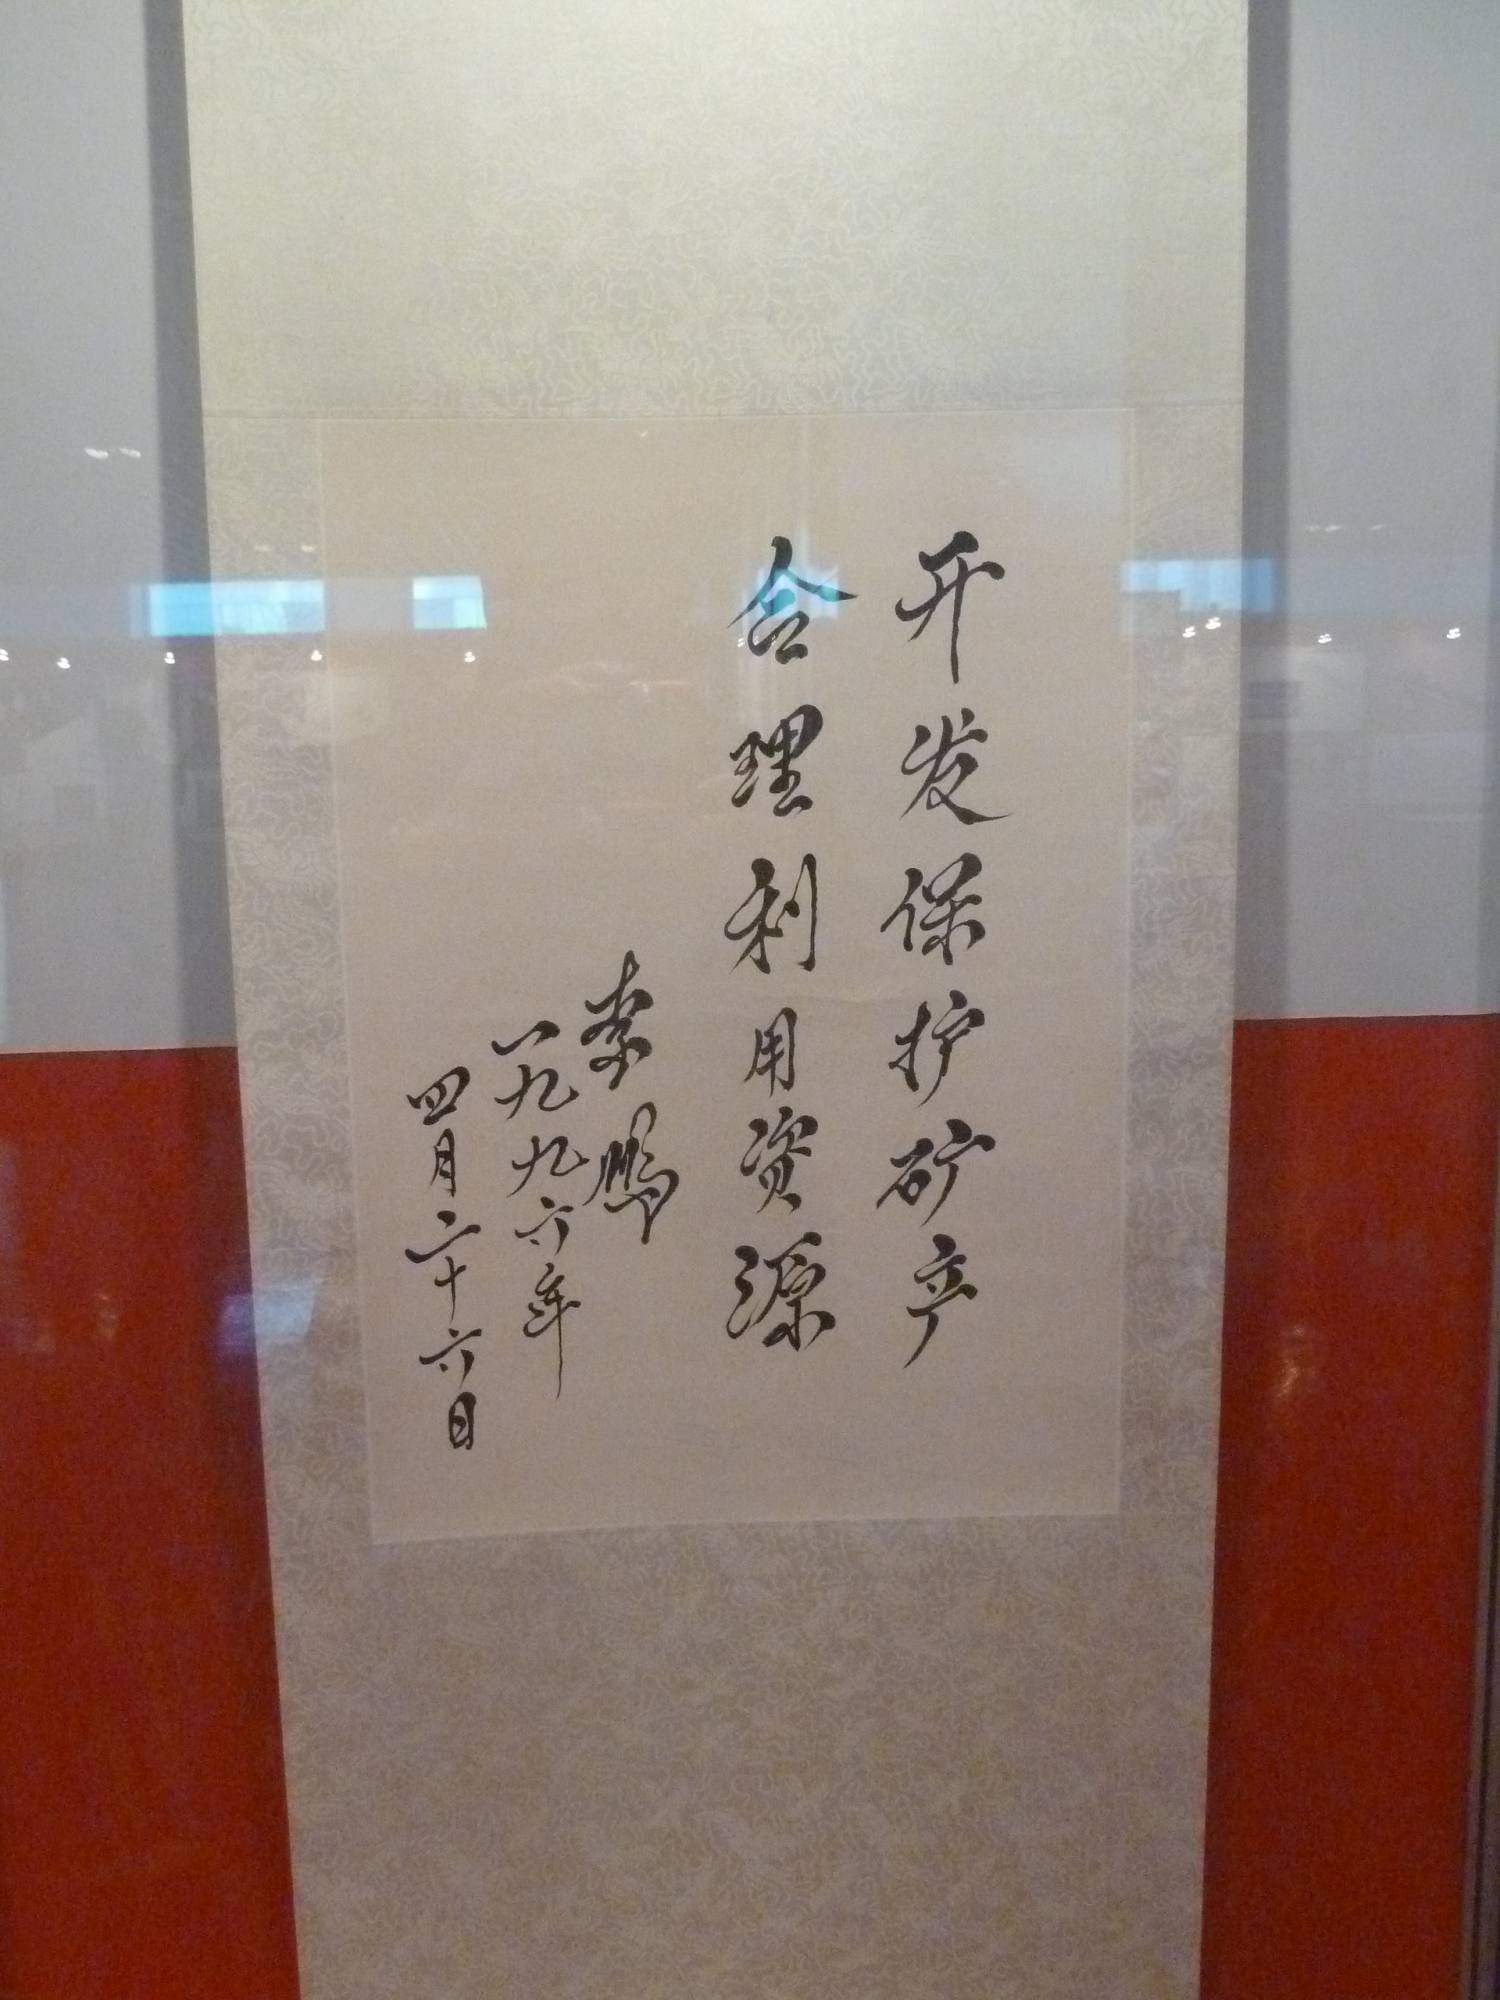 开发保护矿产
合理利用资源
李鹏
一九九六年
四月二十六日